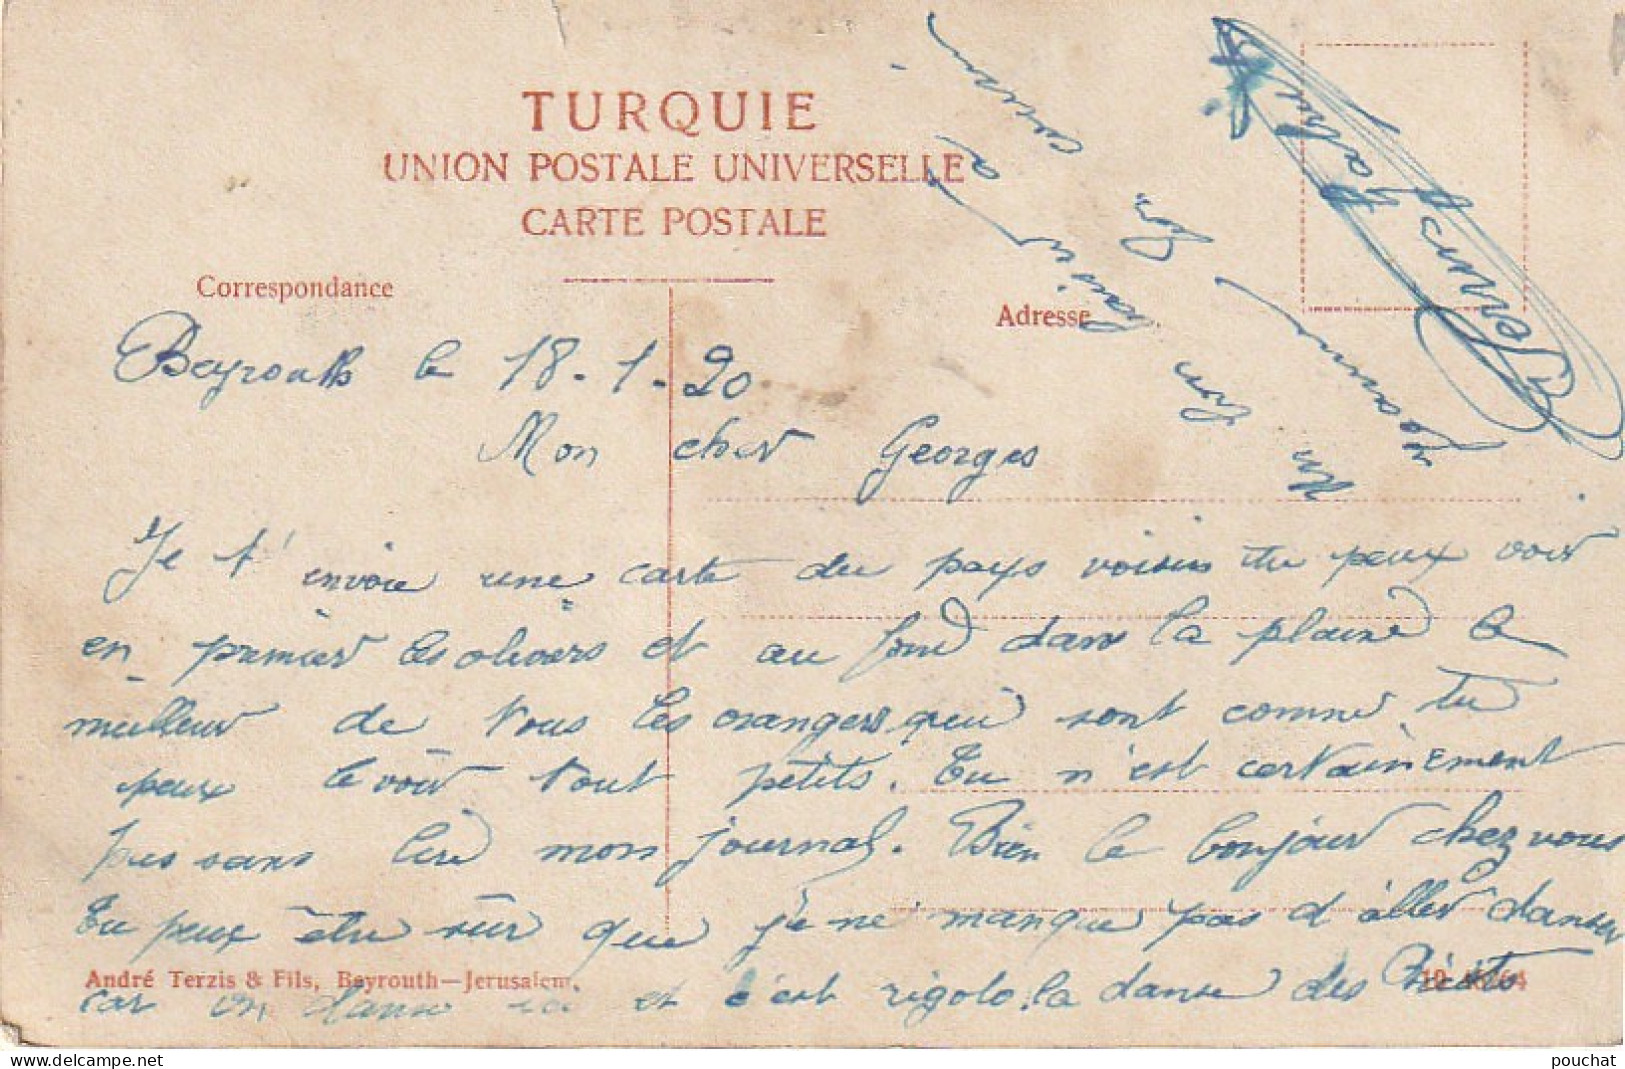 TURQUIE
UNION POSTALE UNIVERSELLE
CARTE POSTALE
Correspondance
Adresse
Beyrouth le 18-1-20
Mon cher Georges
Je t'envoie une carte du pays voisin tu peux voir
en premier les oliviers et au fond dans la plaine le
meilleur de tous les orangers qui sont comme tu
peux le voir tout petits. Tu n'est certainement
pas sans lire mon journal. Bien le bonjour chez vous
Tu peux être sûr que je ne manque pas d'aller danser
car on danse ici et c'est rigolo la danse des
André Terzis & Fils, Beyrouth—Jerusalem.
Un bon baiser à
ton cousin
pouchat